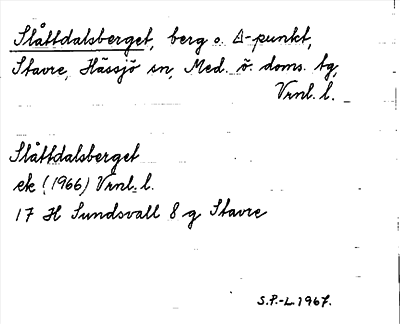 Slåttdalsberget, berg o. Δ-punkt,
Stavre, Hässjö sn, Med. ö. doms. tg,
Vrnl. l.
Slåttdalsberget
ek (1966) Vrnl. l.
17 H Sundsvall 8 g Stavre
S.P.-L. 1967.